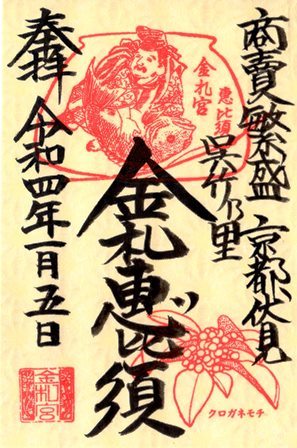 商賣繁盛 京都伏見
呉竹乃里
恵比須
金札宮
金札恵比須
奉拝 令和四年一月五日
金札宮
クロガネモチ